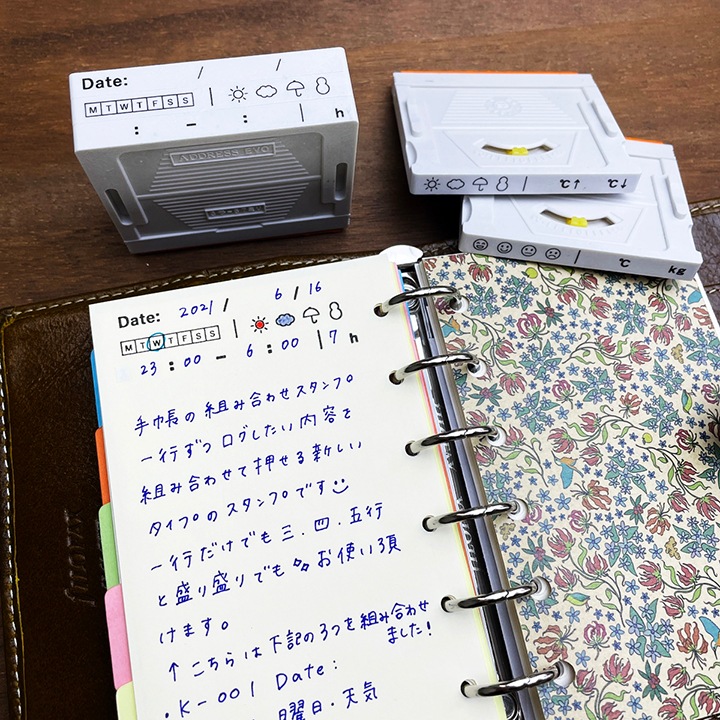 Date: / /
M T W T F S S |
: - : | h
ADDRESS EVO
| ℃↑ ℃↓
| ℃ kg
Date: 2021 / 6 / 16
M T W T F S S |
23 : 00 - 6 : 00 | 7 h
手帳の組み合わせスタンプ
一行ずつログしたい内容を
組み合わせて押せる新しい
タイプのスタンプです
一行だけでも三、四、五行
と盛り盛りでもお使い頂
けます。
↑こちらは下記の3つを組み合わせ
ました!
・K-001 Date:
曜日・天気